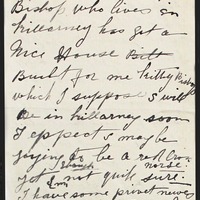 Bishop who lives in
Killarney has got a
Nice House
Built for me
which I suppose I will
be in Killarney soon
I expect I maybe
going to be a red Cross
nurse
yet I'm not quite sure
I have some privet news